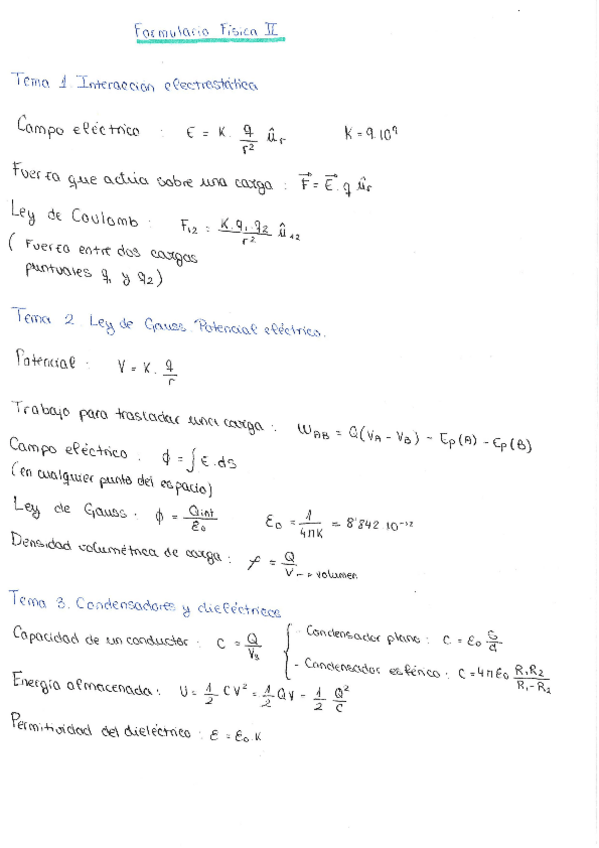 Formulario Física II
Tema 1. Interacción electrostática
Campo eléctrico : E = K. q/r² û_r K = 9.10⁹
Fuerza que actúa sobre una carga : F⃗ = E⃗ . q û_r
Ley de Coulomb : F₁₂ = K.q₁.q₂/r² û₁₂
( Fuerza entre dos cargas
puntuales q₁ y q₂)
Tema 2. Ley de Gauss. Potencial eléctrico.
Potencial : V = K. q/r
Trabajo para trasladar una carga : W_AB = Q(V_A - V_B) - Ep(A) - Ep(B)
Campo eléctrico . ϕ = ∫ E . ds
(en cualquier punto del espacio)
Ley de Gauss . ϕ = Qint/ε₀ ε₀ = 1/4πK = 8'842 10⁻¹²
Densidad volumétrica de carga : f = Q/V --> volumen
Tema 3. Condensadores y dieléctricos
Capacidad de un conductor : C = Q/V { - Condensador plano : C = ε₀ S/d
- Condensador esférico : C = 4πε₀ R₁R₂/R₁-R₂
Energía almacenada : U = 1/2 CV² = 1/2 QV - 1/2 Q²/C
Permitividad del dieléctrico : ε = ε₀.K